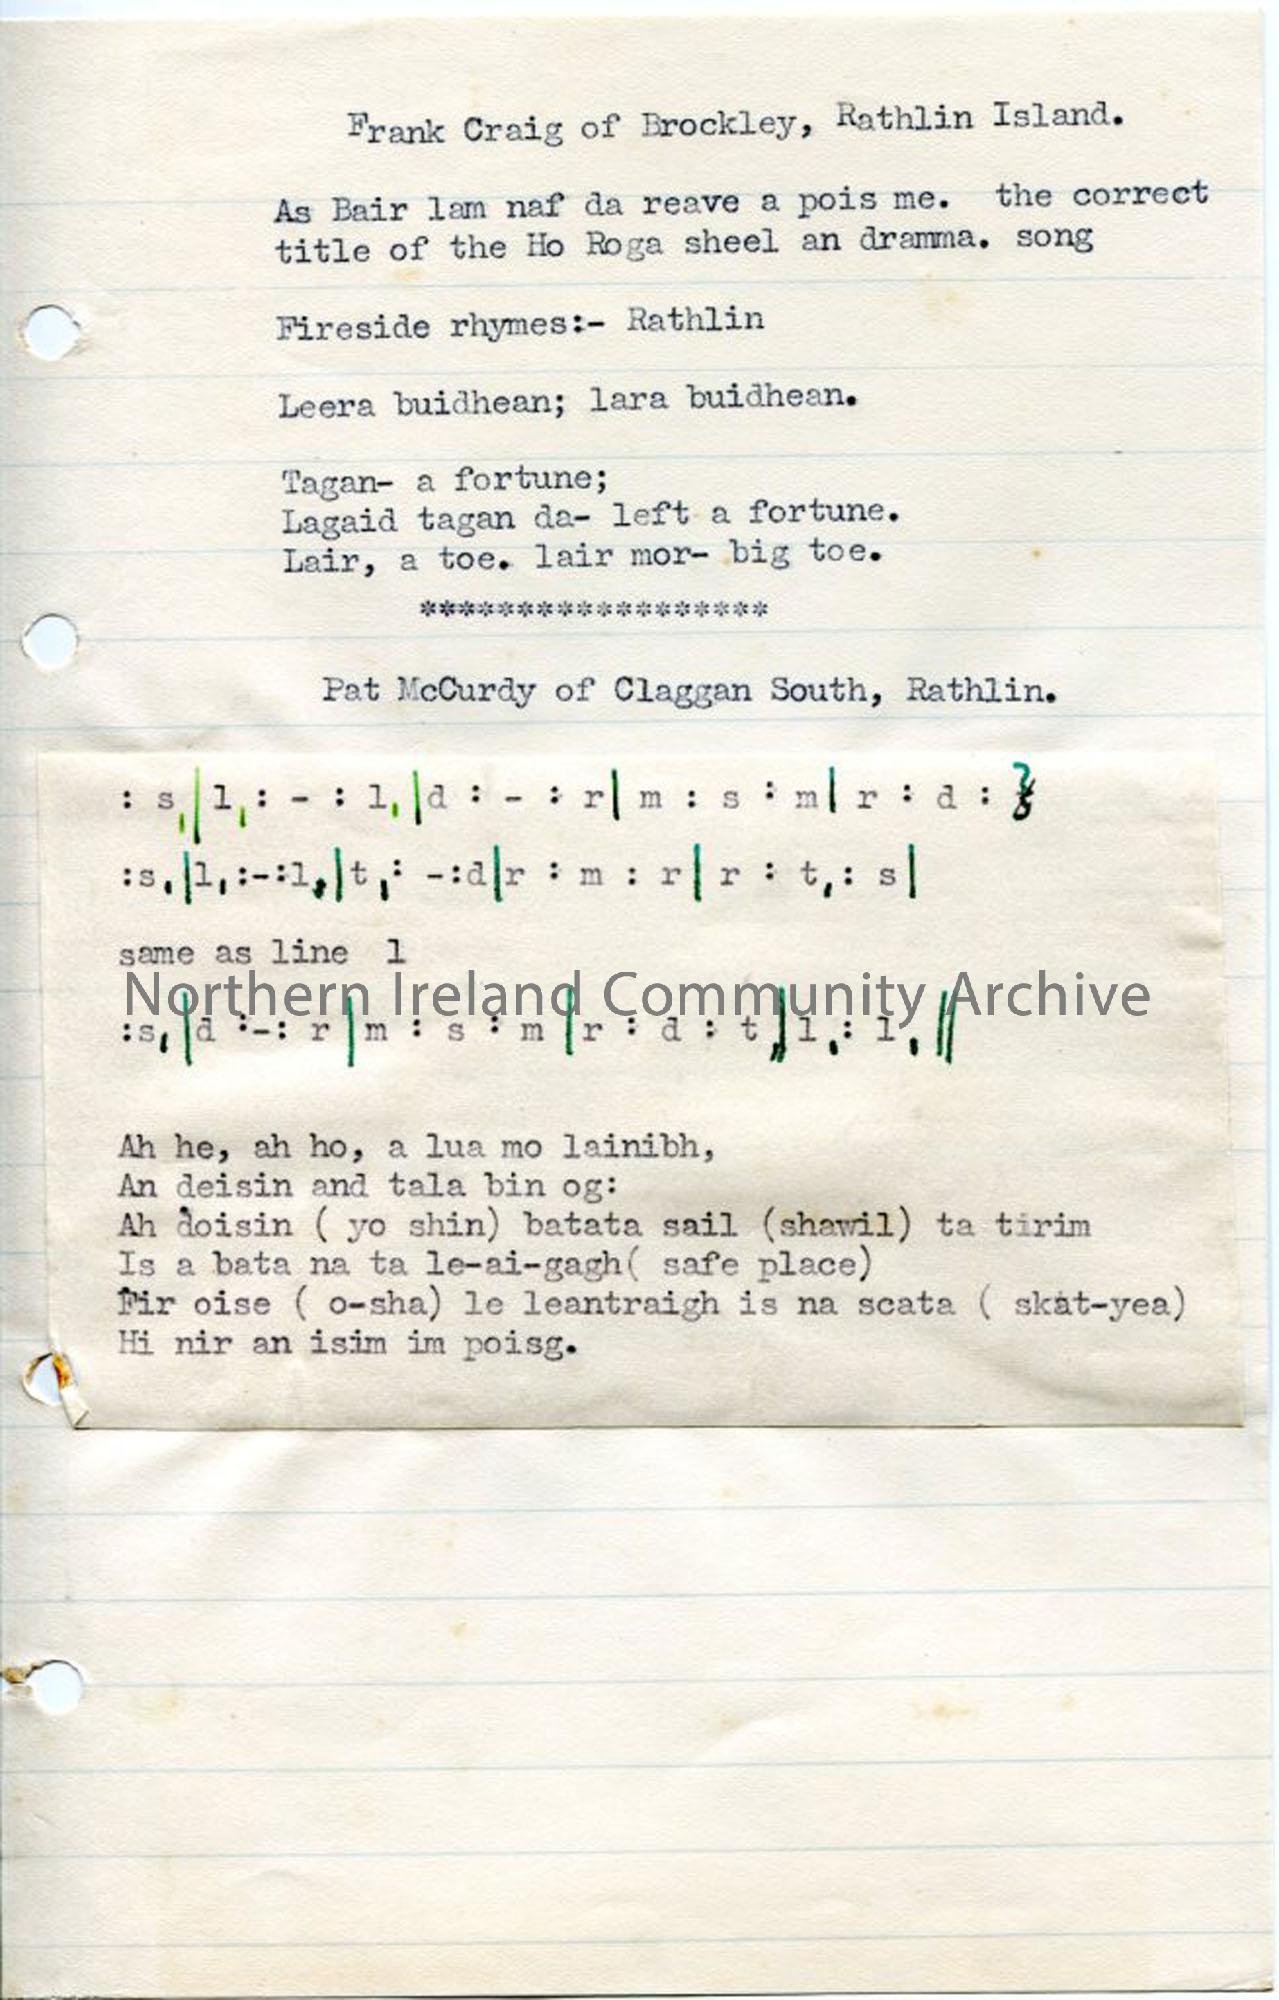 Frank Craig of Brockley, Rathlin Island.
As Bair lam naf da reave a pois me. the correct
title of the Ho Roga sheel an dramma. song
Fireside rhymes:- Rathlin
Leera buidhean; lara buidhean.
Tagan- a fortune;
Lagaid tagan da- left a fortune.
Lair, a toe. lair mor- big toe.
******************
Pat McCurdy of Claggan South, Rathlin.
: s,|l,: - : l,|d : - : r|m : s : m|r : d :
:s,|l,:-:l,|t,: -:d|r : m : r|r : t,: s|
same as line 1
Northern Ireland Community Archive
:s,|d :-: r|m : s : m|r : d : t,|l,: l,||
Ah he, ah ho, a lua mo lainibh,
An deisin and tala bin og:
Ah doisin ( yo shin) batata sail (shawil) ta tirim
Is a bata na ta le-ai-gagh( safe place)
Fir oise ( o-sha) le leantraigh is na scata ( skat-yea)
Hi nir an isim im poisg.